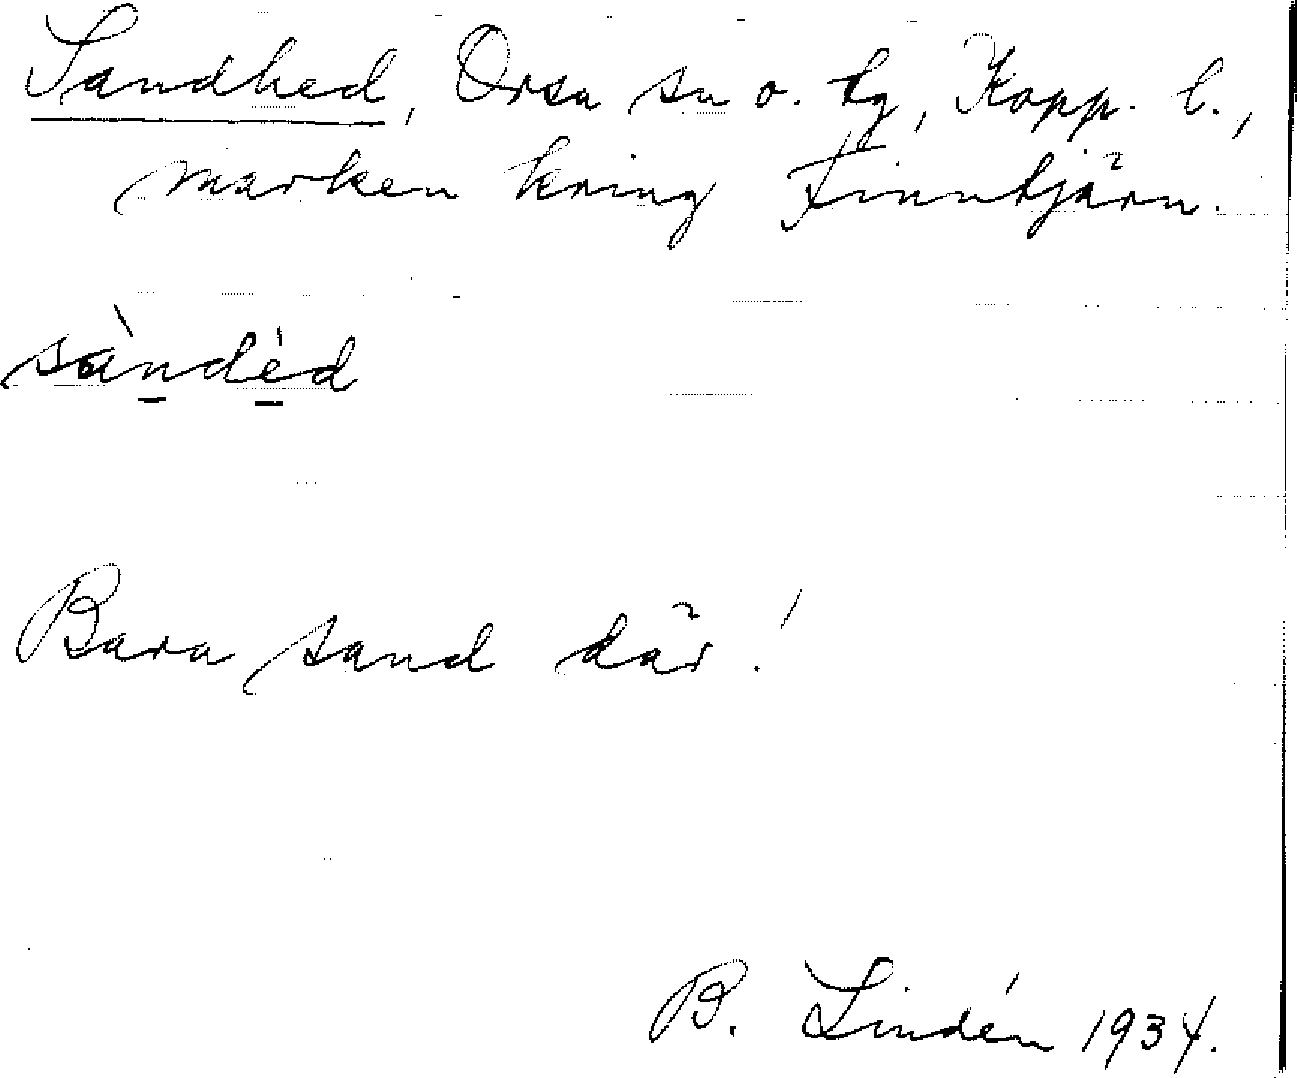 Sandhed, Orsa sn o. tg, Kopp. l.,
marken kring Finntjärn.
sàndèd
Bara sand där!
B. Lindén 1934.